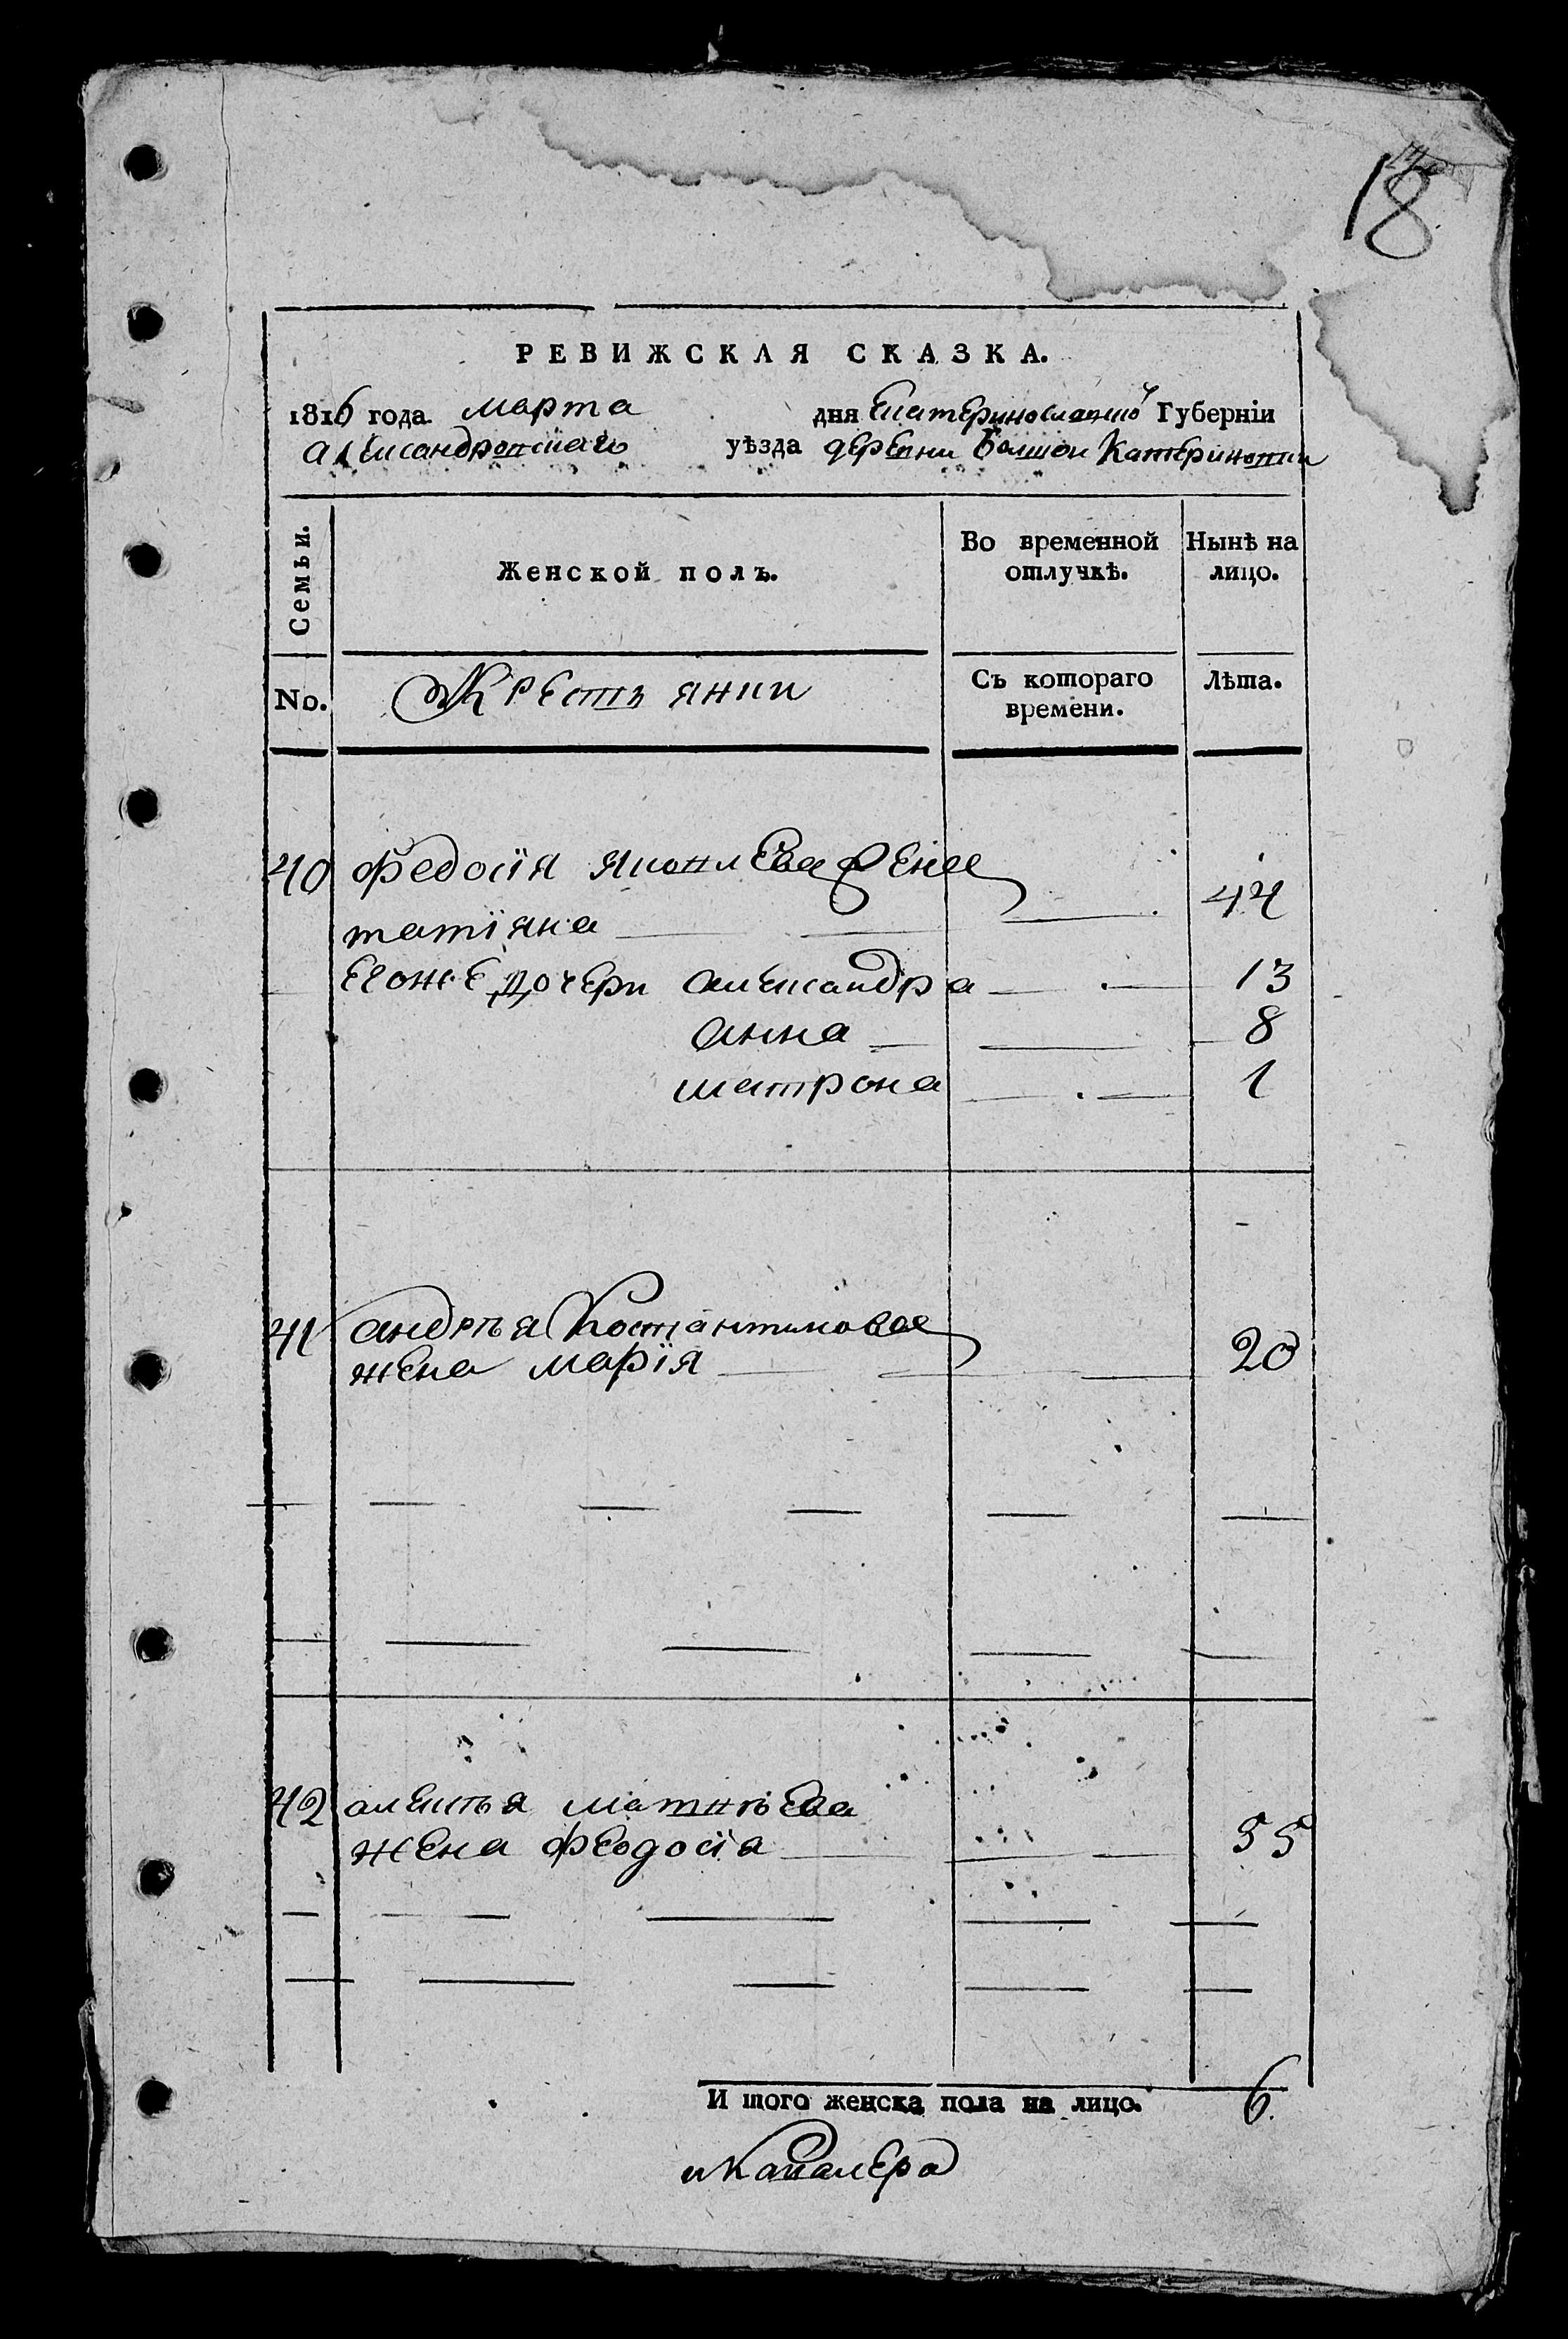 18
РЕВИЖСКАЯ СКАЗКА.
1816 года марта дня Екатеринославской Губерніи
александровскаго уѣзда деревни Болшой Катериновки
Семьи.
Женской полъ.
Во временной отлучкѣ.
Нынѣ на лицо.
No.
Крестьянки
Съ котораго времени.
Лѣта.
40 Федосія яковлева жена
татіяна 44
егоже дочери александра 13
анна 8
матрона 1
41 андрѣя Костантинова
жена марія 20
42 алексѣя матвѣева
жена феодосія 55
И того женска пола на лицо. 6.
и Кавалера